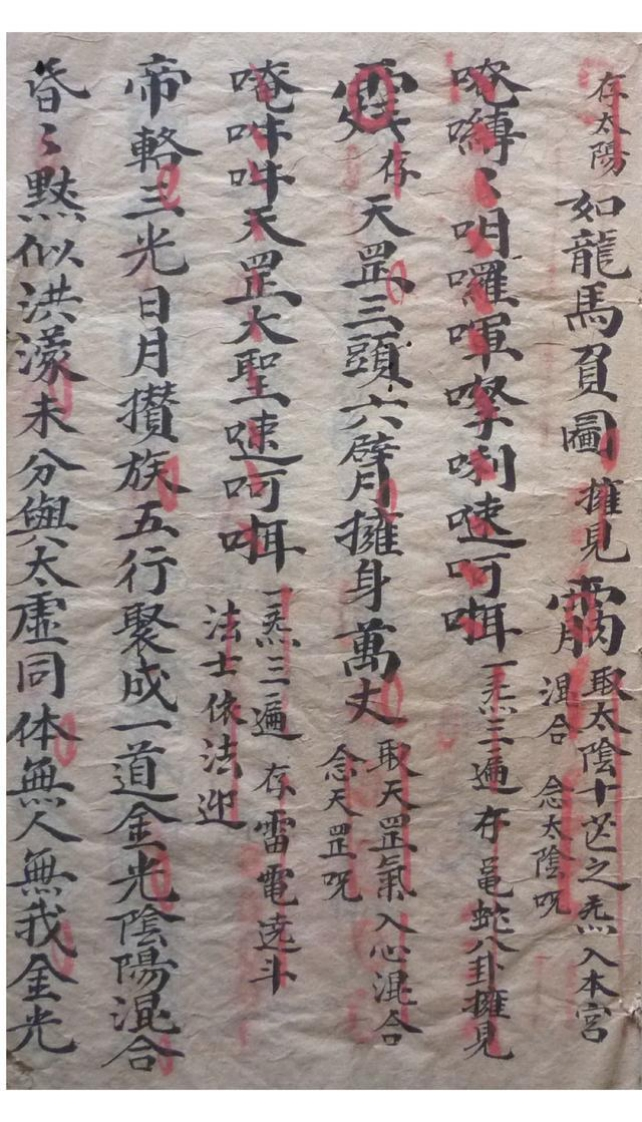 存太陽 如龍馬負圖 擁見 取太陰十芒之炁入本宮
混合 念太陰咒
唵嚩〻呾囉嘩㗚唎㗭呵㖿 一炁三遍 存黽蛇八卦擁見
存天罡三頭六臂擁身萬丈 取天罡氣入心混合
念天罡咒
唵吽吽天罡大聖㗭呵㖿 一炁三遍 存雷電遶斗
法士依法迎
帝輅三光日月攢族五行聚成一道金光陰陽混合
昏〻黙似洪濛未分與太虛同体無人無我金光